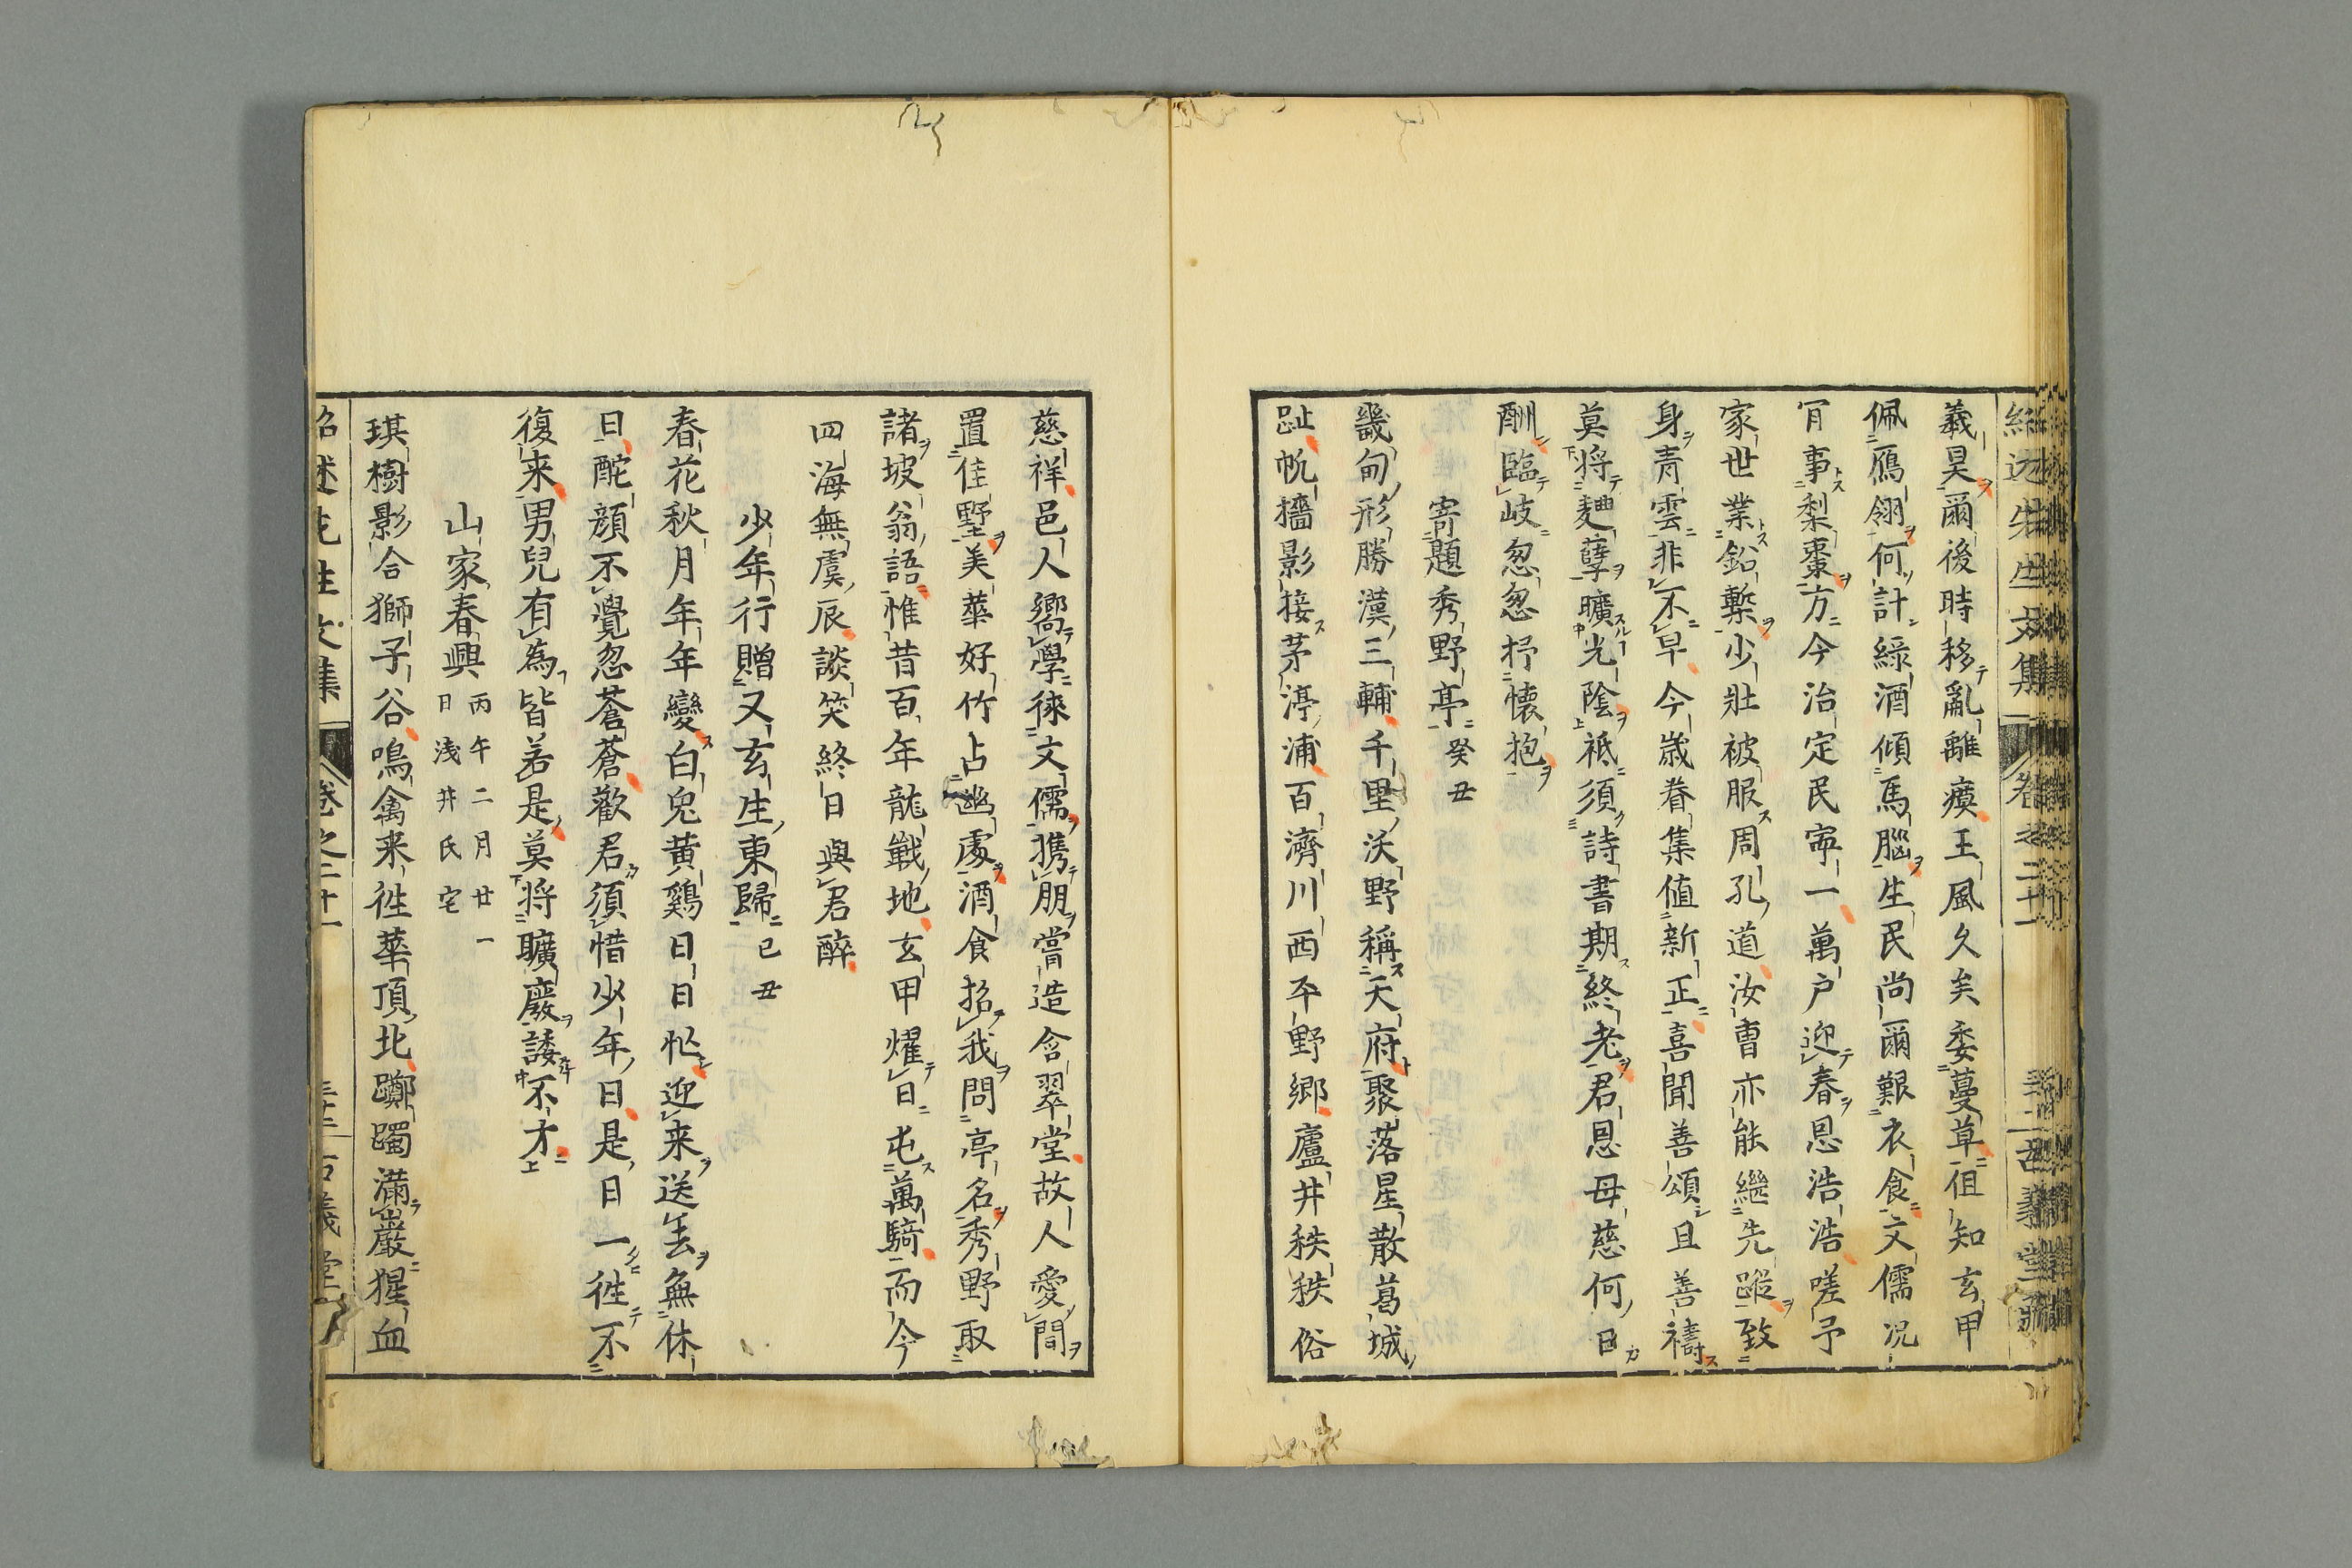 義昊爾後時移亂離瘼王風久矣委蔓草徂知玄甲
佩鴈翎何計綠酒傾馬腦生民尚爾艱衣食文儒况
肎事梨棗方今治定民寧一萬户迎春恩浩浩嗟予
家世業鉛槧少壯被服周孔道汝曹亦能繼先蹤致
身青雲非不早今歲眷集値新正喜聞善頌且善禱
莫将麯孽曠光陰祗須詩書期終老君恩母慈何日
酬臨岐怱怱抒懷抱
寄題秀野亭 癸丑
畿甸形勝漢三輔千里沃野稱天府聚落星散葛城
趾帆檣影接茅渟浦百濟川西平野郷廬井秩秩俗
慈祥邑人嚮學徠文儒携朋嘗造含翠堂故人愛間
置佳墅美華好竹占幽處酒食招我問亭名秀野取
諸坡翁語惟昔百年龍戰地玄甲燿日屯萬騎而今
四海無虞辰談笑終日與君醉
少年行贈又玄生東歸 己丑
春花秋月年年變白兔黄鷄日日忙迎来送去無休
日酡顔不覺忽蒼蒼歡君須惜少年日是日一徃不
復来男兒有為皆若是莫将曠廢諉不才
山家春興 丙午二月廿一
日淺井氏宅
琪樹影合獅子谷鳴禽来徃華頂北躑躅滿巖猩血
紹述先生文集 卷之二十一 古義堂